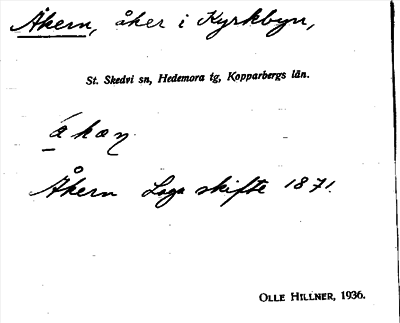 Åkern, åker i Kyrkbyn,
St. Skedvi sn, Hedemora tg, Kopparbergs län.
Åkern Laga skifte 1871.
OLLE HILLNER, 1936.